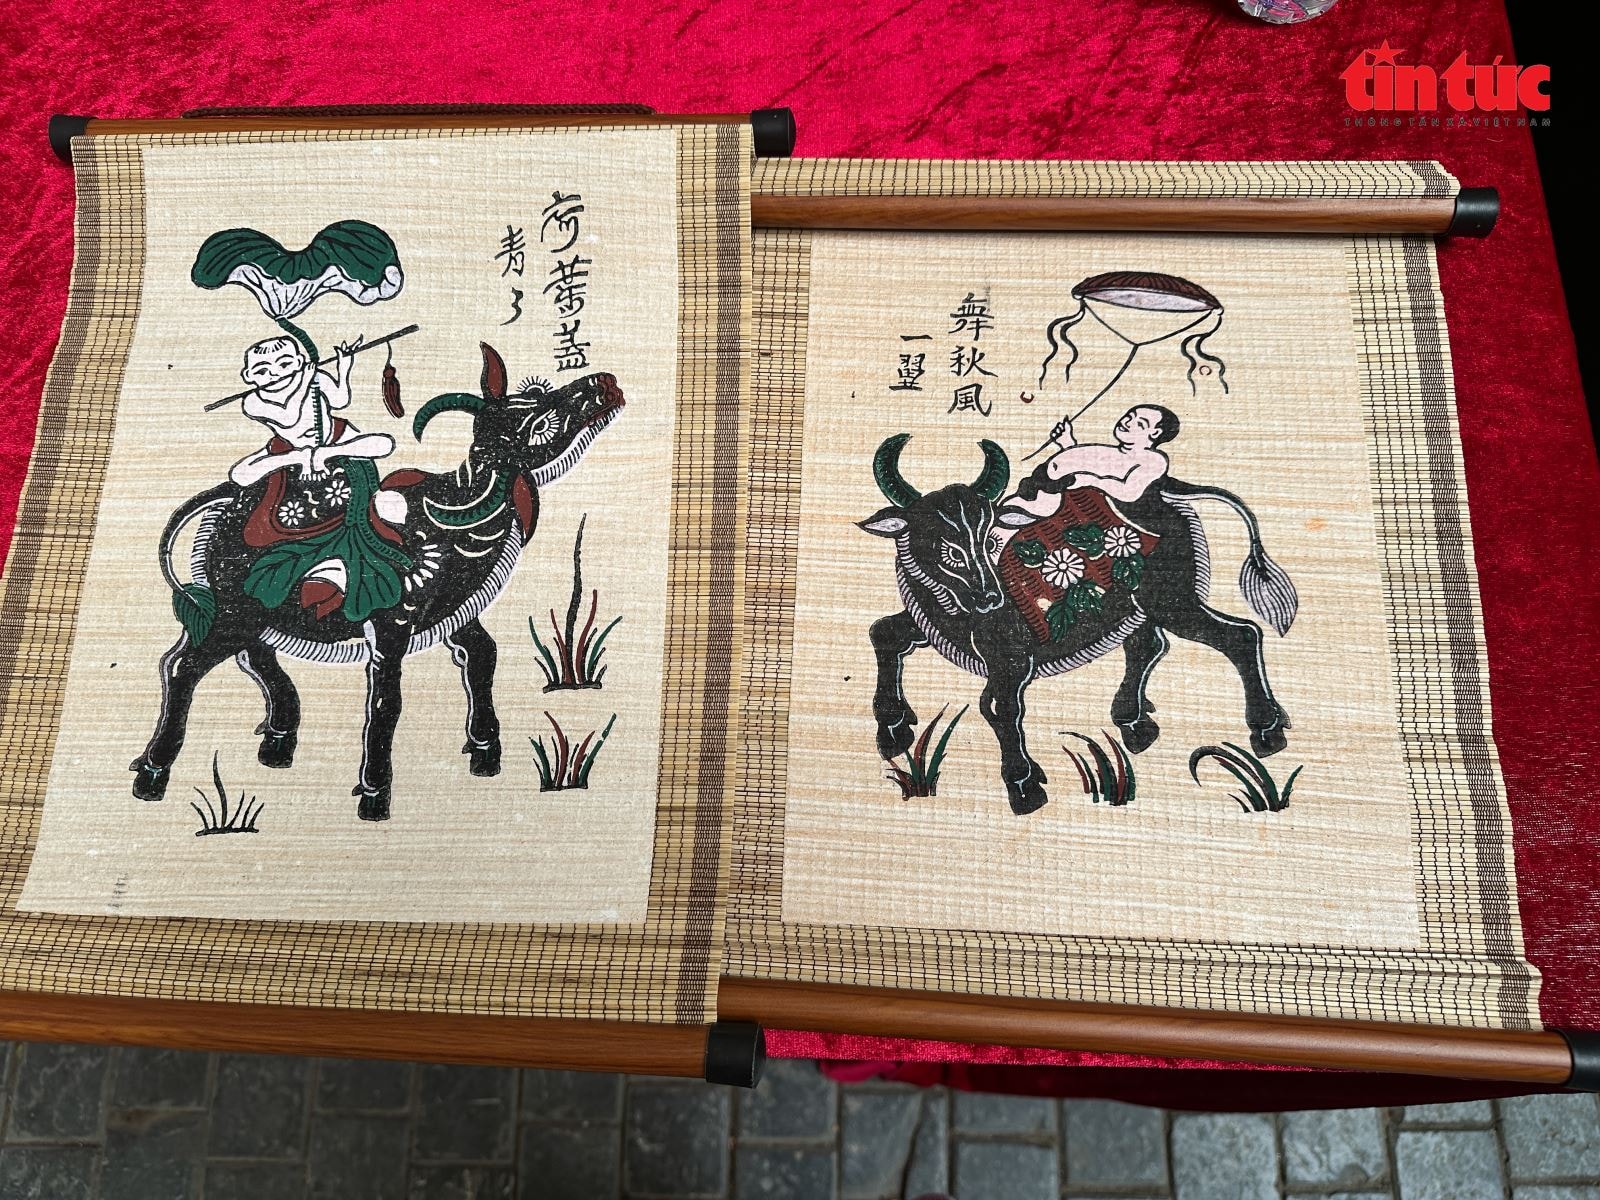 荷葉蓋
青了
舞秋風
一翼
tin tức
THÔNG TẤN XÃ VIỆT NAM